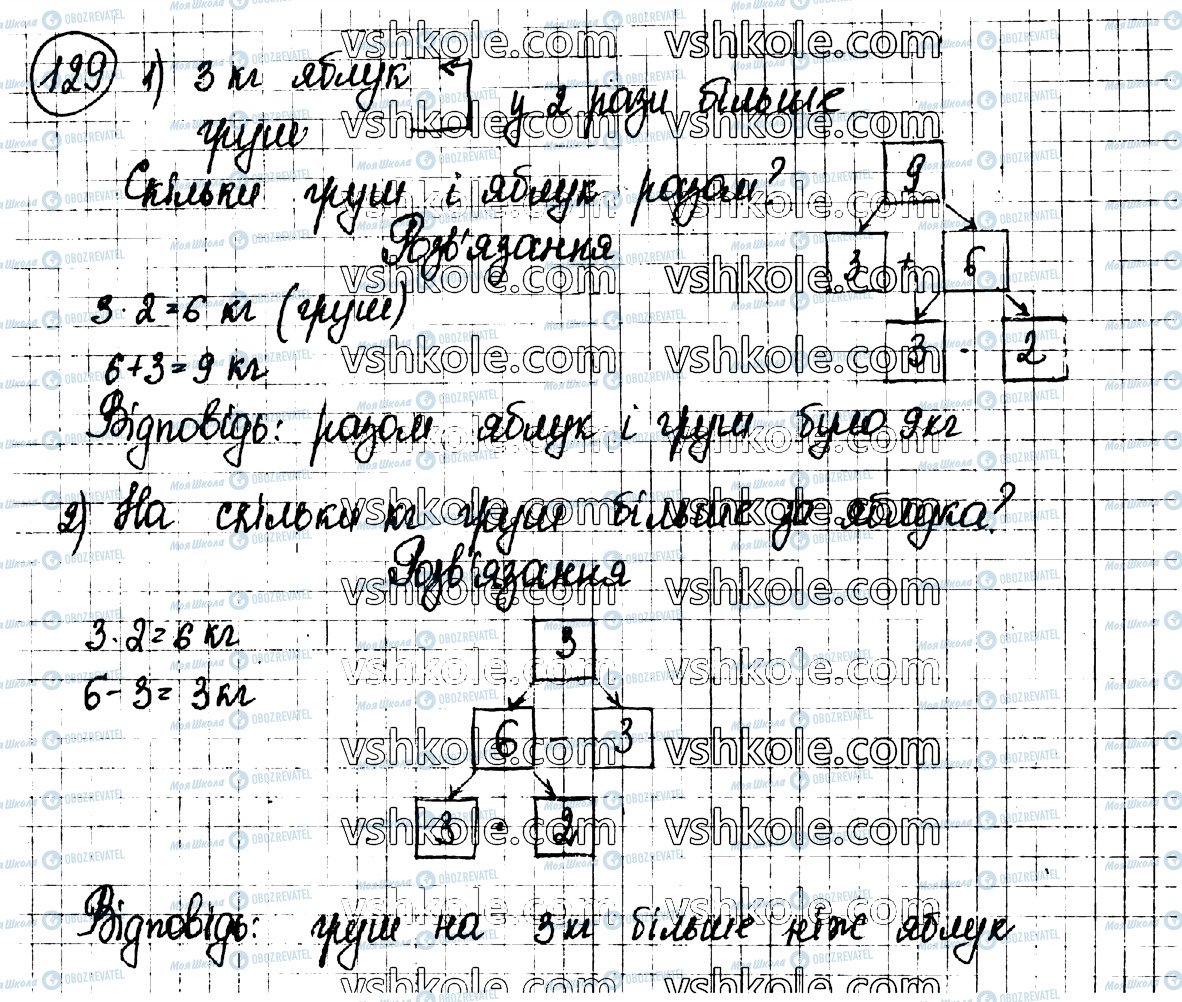 129 1) 3 кг яблук
груш у 2 рази більше
Скільки груш і яблук разом?
9
Розв'язання
3 + 6
3 · 2 = 6 кг (груш)
3 · 2
6 + 3 = 9 кг
Відповідь: разом яблук і груш було 9 кг
2) На скільки кг груш більше за яблука?
Розв'язання
3 · 2 = 6 кг
3
6 - 3 = 3 кг
6 - 3
3 · 2
Відповідь: груш на 3 кг більше ніж яблук
vshkole.com
Моя Школа OBOZREVATEL